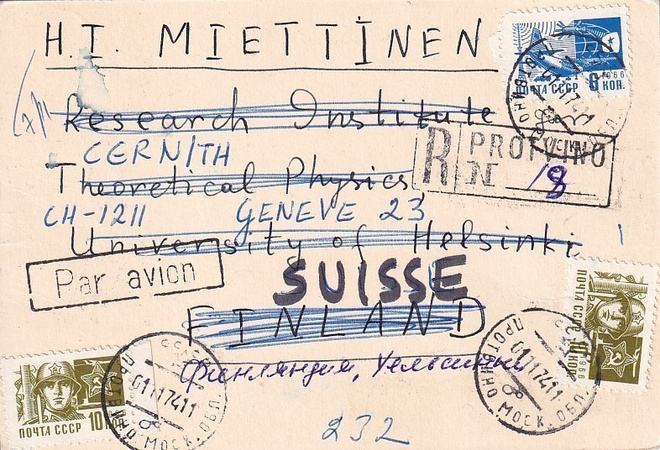 H.I. MIETTINEN
Research Institute
CERN/TH
Theoretical Physics
CH-1211 GENEVE 23
University of Helsinki
SUISSE
FINLAND
Финляндия, Хельсинки
232
Par avion
R PROTVINO
N 18
ПОЧТА СССР 6 КОП.
1966
ПОЧТА СССР 10 КОП.
ПОЧТА СССР 10 КОП.
1966
СССР
ПРОТВИНО МОСК. ОБЛ.
01117411
СССР
ПРОТВИНО МОСК. ОБЛ.
01117411